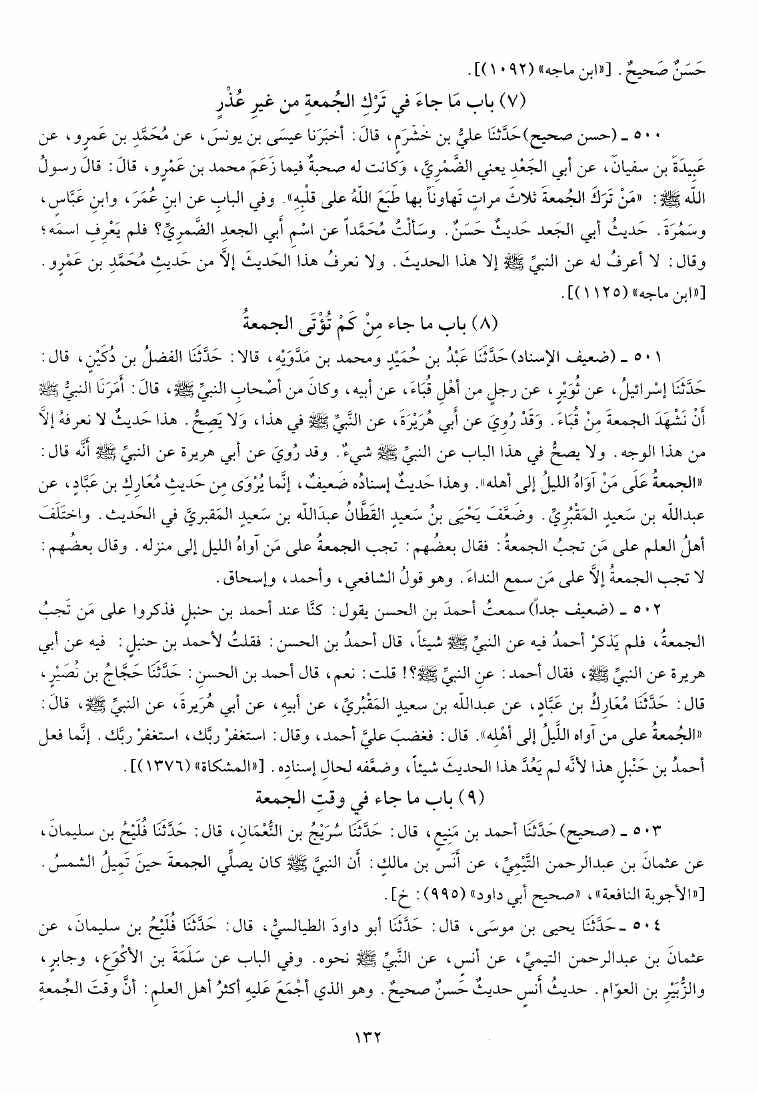 حَسَنٌ صَحيحٌ. [«ابن ماجه» (١٠٩٢)].
(٧) باب مَا جاءَ في تَرْكِ الجُمعةِ من غيرِ عُذْرٍ
٥٠٠ ـ (حسن صحيح) حَدَّثنَا عليُّ بن خَشْرَمٍ، قالَ: أخبَرَنا عيسَى بن يونسَ، عن مُحَمَّدِ بن عَمرٍو، عن
عَبِيدَةَ بن سفيانَ، عن أبي الجَعْدِ يعني الضَّمْرِيَّ، وَكانت له صحبةٌ فيما زَعَمَ محمد بن عَمْرٍو، قالَ: قالَ رسولُ
اللّه ﷺ: «مَنْ تَرَكَ الجُمعةَ ثلاثَ مراتٍ تَهاوناً بها طَبَعَ اللّهُ على قلْبِهِ». وفي البابِ عن ابنِ عُمَرَ، وابنِ عَبَّاسٍ،
وسَمُرَةَ. حَديثُ أبي الجَعد حَديثٌ حَسَنٌ. وسَألْتُ مُحَمَّداً عن اسْمِ أبي الجعدِ الضَّمريِّ؟ فلم يَعْرِفِ اسمَه؛
وقال: لا أعرفُ له عن النبيِّ ﷺ إلا هذا الحديثَ. ولا نعرفُ هذا الحَديثَ إلاَّ من حَديثِ مُحَمَّدِ بن عَمْرٍو.
[«ابن ماجه» (١١٢٥)].
(٨) باب ما جاء مِنْ كَمْ تُؤْتَى الجمعةُ
٥٠١ ـ (ضعيف الإسناد) حَدَّثَنَا عَبْدُ بن حُمَيْدٍ ومحمد بن مَدَّوَيْهِ، قالا: حَدَّثَنَا الفضلُ بن دُكَيْنٍ، قال:
حَدَّثنَا إسْرائيلُ، عن ثُوَيْرٍ، عن رجلٍ من أهْلِ قُبَاءَ، عن أبيه، وكانَ من أصْحابِ النبيِّ ﷺ، قالَ: أمَرَنَا النبيُّ ﷺ
أنْ نَشْهَدَ الجمعةَ مِنْ قُبَاءَ. وَقَدْ رُوِيَ عن أبي هُرَيْرَةَ، عن النَّبيِّ ﷺ في هذا، وَلا يَصِحُّ. هذا حَديثٌ لا نعرفهُ إلاَّ
من هذا الوجه. ولا يصحُّ في هذا الباب عن النبيِّ ﷺ شيءٌ. وقد رُويَ عن أبي هريرة عن النبيِّ ﷺ أنَّه قال:
«الجمعةُ عَلَى مَنْ آوَاهُ الليلُ إلى أهله». وهذا حَديثٌ إسنادُه ضَعيفٌ، إنَّما يُرْوَى مِن حَديثِ مُعَارِكِ بن عَبَّادٍ، عن
عبداللّه بن سَعيدٍ المَقْبُرِيِّ. وضعَّفَ يَحْيَى بنُ سَعيدٍ القَطَّانُ عبدَاللّه بن سَعيدٍ المَقبريَّ في الحَديث. واختَلَفَ
أهلُ العلم على مَن تجبُ الجمعةُ: فقال بعضُهم: تجب الجمعةُ على مَن آواهُ الليل إلى منزله. وقال بعضُهم:
لا تجب الجمعةُ إلاَّ على مَن سمع النداءَ. وهو قولُ الشافعي، وأحمد، وإسحاق.
٥٠٢ ـ (ضعيف جداً) سمعتُ أحمدَ بن الحسن يقول: كنَّا عند أحمد بن حنبلٍ فذكروا على مَن تَجبُ
الجمعةُ، فلم يَذكرْ أحمدُ فيه عن النبيِّ ﷺ شيئاً، قال أحمدُ بن الحسن: فقلتُ لأحمد بن حنبلٍ: فيه عن أبي
هريرة عن النبيِّ ﷺ، فقال أحمد: عنِ النبيِّ ﷺ؟! قلت: نعم، قال أحمد بن الحسنِ: حَدَّثَنَا حَجَّاجُ بن نُصَيْرٍ،
قال: حَدَّثَنَا مُعَارِكُ بن عَبَّادٍ، عن عبداللّه بن سعيدٍ المَقْبُريِّ، عن أبيهِ، عن أبي هُرَيرةَ، عن النبيِّ ﷺ، قالَ:
«الجُمعةُ على من آواه اللَّيلُ إلى أهْلِه». قال: فغضبَ عليَّ أحمد، وقال: استغفرْ ربَّك، استغفرْ ربَّك. إنَّما فعل
أحمدُ بن حَنْبلٍ هذا لأنَّه لم يَعُدَّ هذا الحديثَ شيئاً، وضعَّفه لحالِ إسنادِه. [«المشكاة» (١٣٧٦)].
(٩) باب ما جاء في وقتِ الجمعة
٥٠٣ ـ (صحيح) حَدَّثَنَا أحمد بن مَنيعٍ، قال: حَدَّثَنَا سُرَيْجُ بن النُّعْمَانِ، قال: حَدَّثَنَا فُلَيْحُ بن سليمانَ،
عن عثمانَ بن عبدالرحمن التَّيْمِيِّ، عن أنَسِ بن مالكٍ: أن النبيَّ ﷺ كان يصلِّي الجمعةَ حينَ تَمِيلُ الشمسُ.
[«الأجوبة النافعة»، «صحيح أبي داود» (٩٩٥): خ].
٥٠٤ ـ حَدَّثَنَا يحيى بن موسَى، قال: حَدَّثَنَا أبو داودَ الطيالسيُّ، قال: حَدَّثَنَا فُلَيْحُ بن سليمانَ، عن
عثمانَ بن عبدالرحمن التيميِّ، عن أنسٍ، عن النَّبيِّ ﷺ نحوه. وفي الباب عن سَلَمَةَ بن الأكْوَعِ، وجابرٍ،
والزُّبَيْرِ بن العوّام. حديثُ أنَسٍ حديثٌ حَسنٌ صحيحٌ. وهو الذي أجْمَعَ عَليهِ أكثرُ أهل العلمِ: أنَّ وقتَ الجُمعةِ
١٣٢